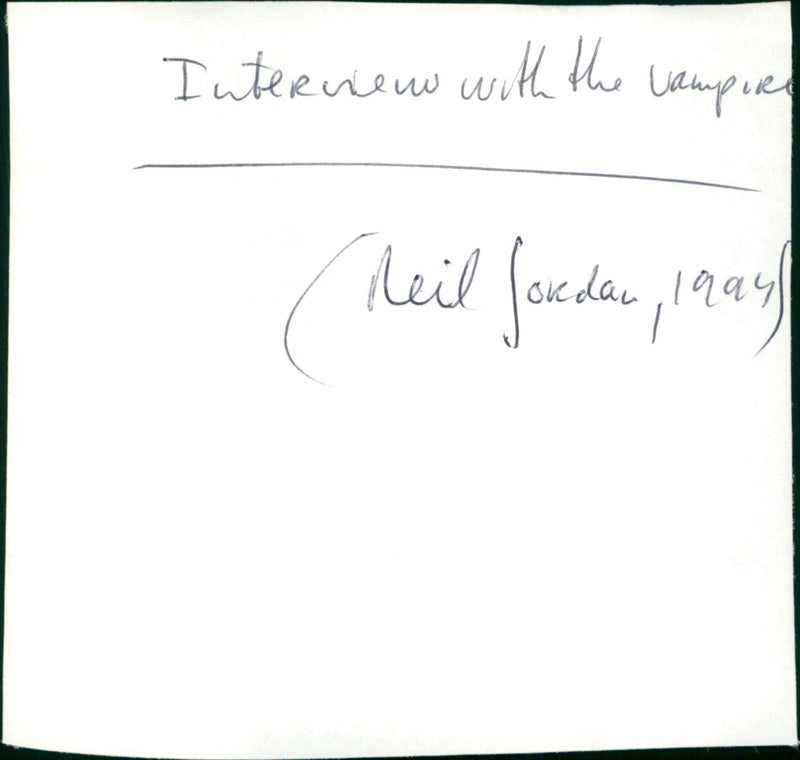 Interview with the Vampire
(Neil Jordan, 1994)